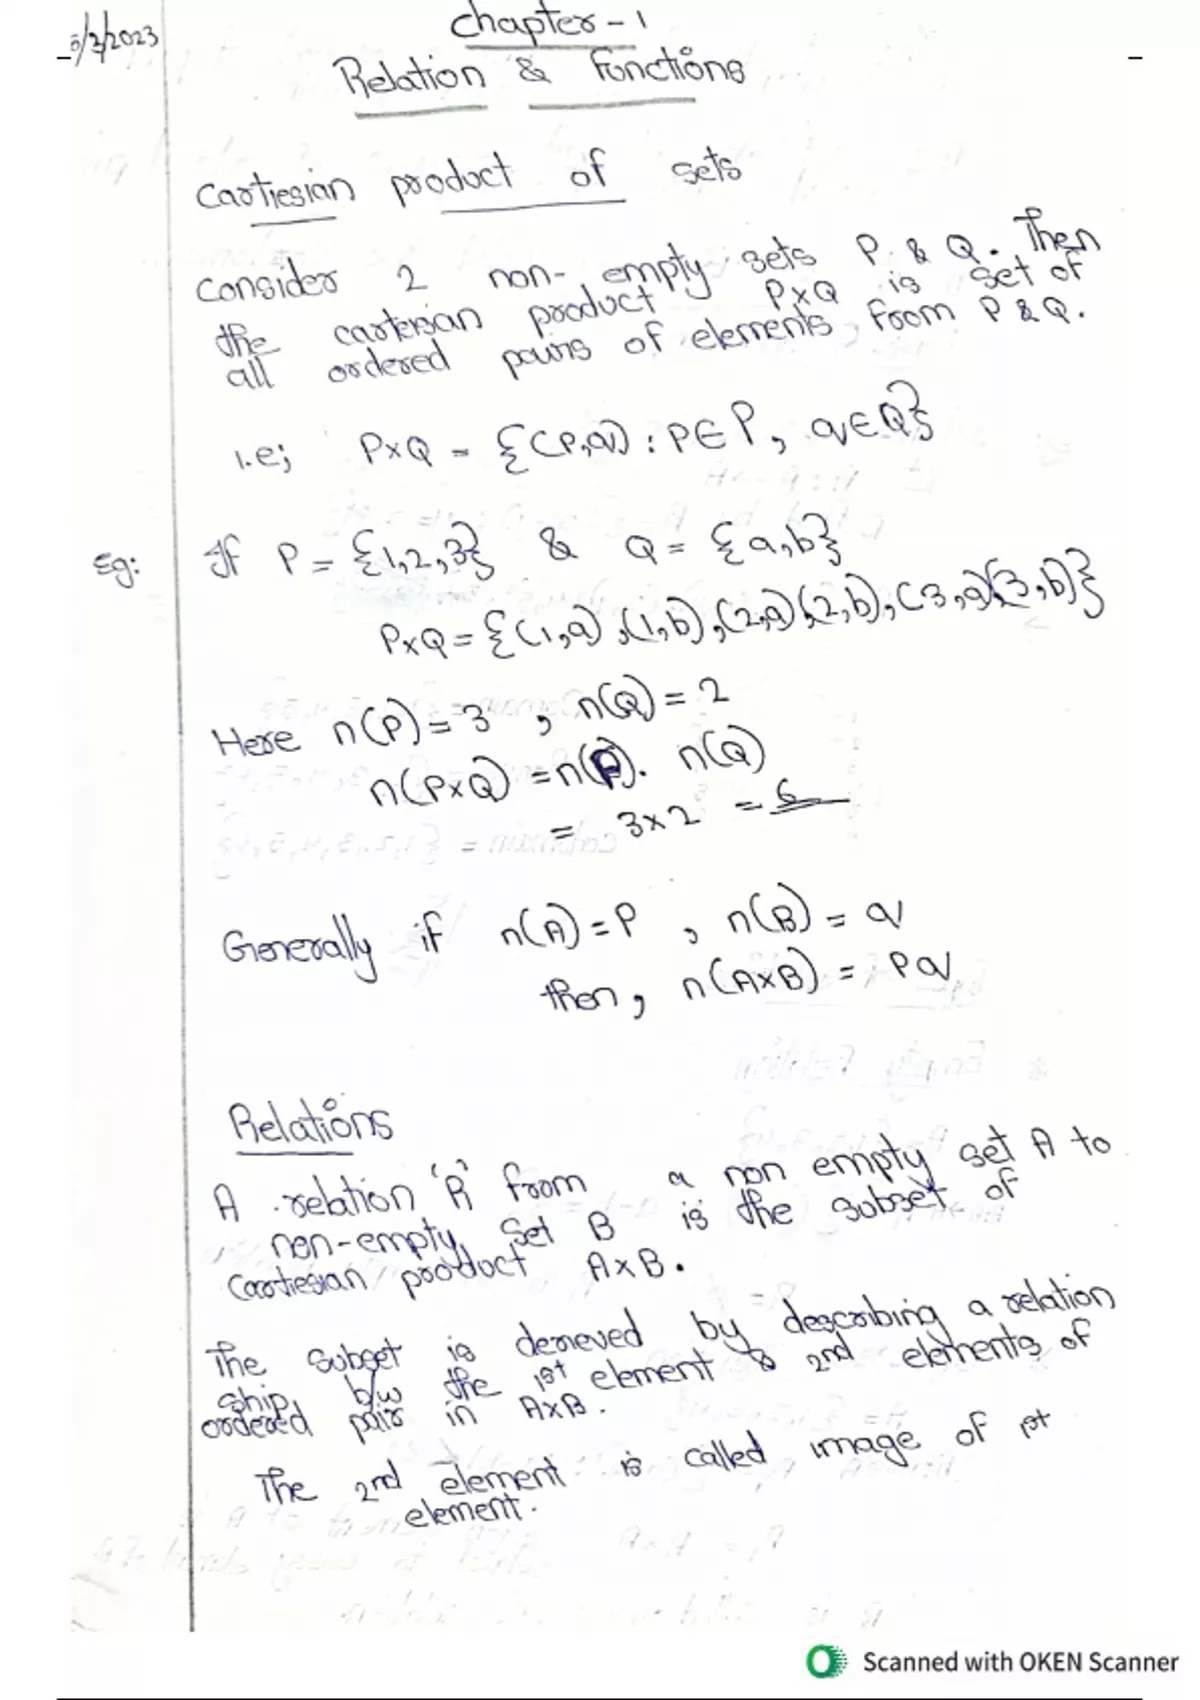 5/3/2023
Chapter-1
Relation & Functions
Cartiesian product of sets
Consider 2 non-empty sets P & Q. Then
the cartersian product PxQ is set of
all ordered pairs of elements from P & Q.
i.e; PxQ = {(P,q) : P∈P, q∈Q}
Eg: If P = {1,2,3} & Q = {a,b}
PxQ = {(1,a),(1,b),(2,a)(2,b),(3,a)(3,b)}
Here n(P) = 3 , n(Q) = 2
n(PxQ) = n(P). n(Q)
= 3x2 = 6
Generally if n(A) = P , n(B) = q
then, n(AxB) = Pq
Relations
A relation 'R' from a non empty set A to
non-empty set B is the subset of
Cartiesian product AxB.
The subset is derieved by describing a relation
ship b/w the 1st element & 2nd elements of
ordered pair in AxB.
The 2nd element is called image of 1st
element.
Scanned with OKEN Scanner